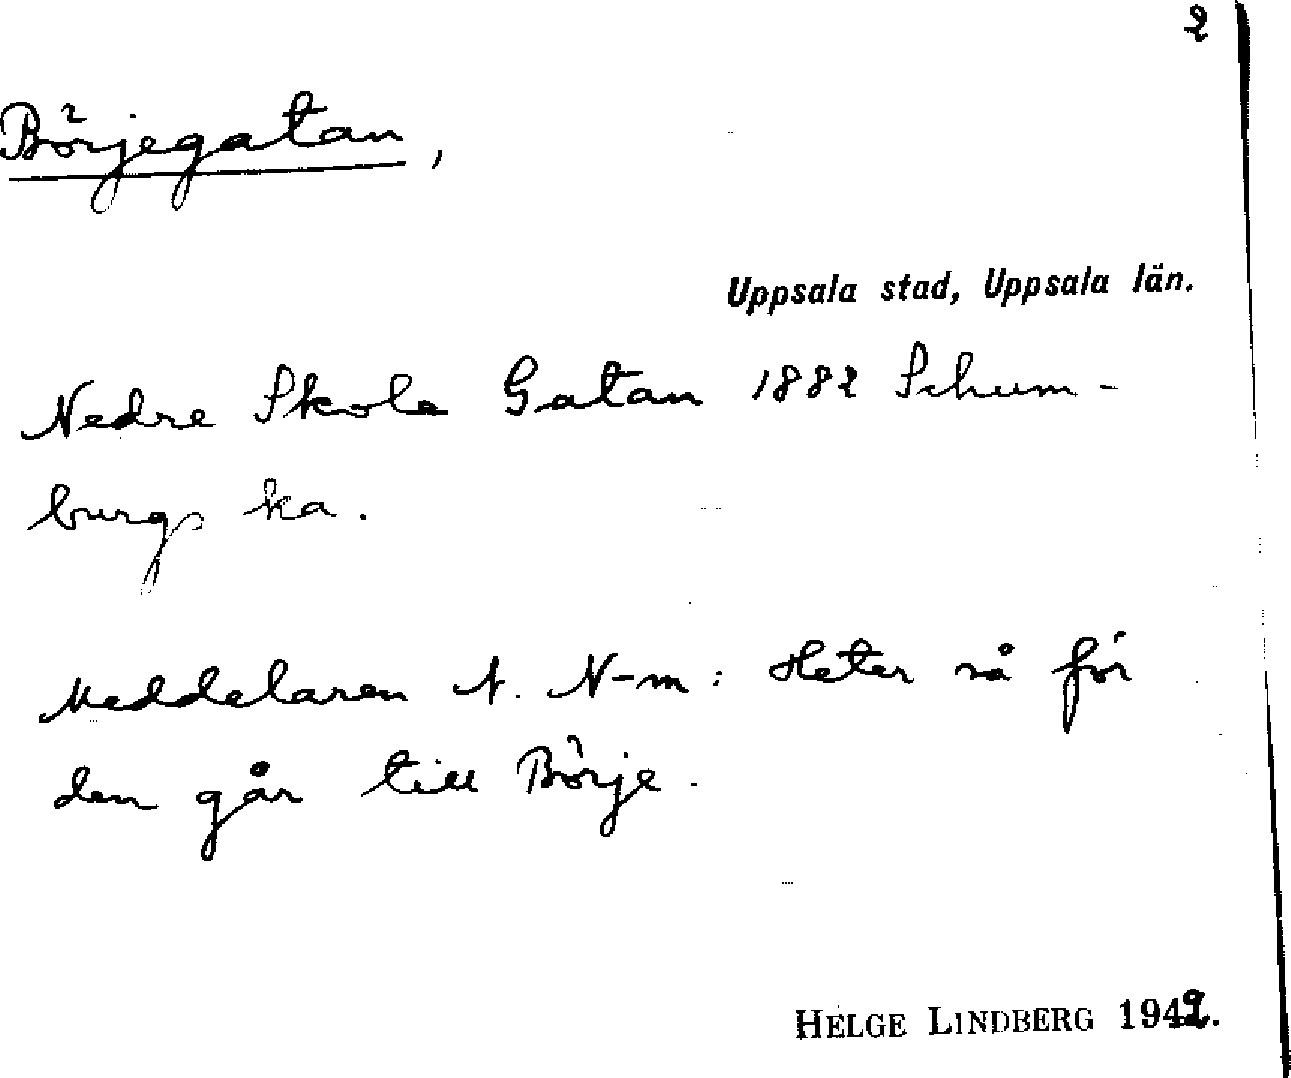 2
Börjegatan,
Uppsala stad, Uppsala län.
Nedre Skola Gatan 1882 Schum-
burgs ka.
Meddelaren A. N-m: Heter så för
den går till Börje.
HELGE LINDBERG 1942.